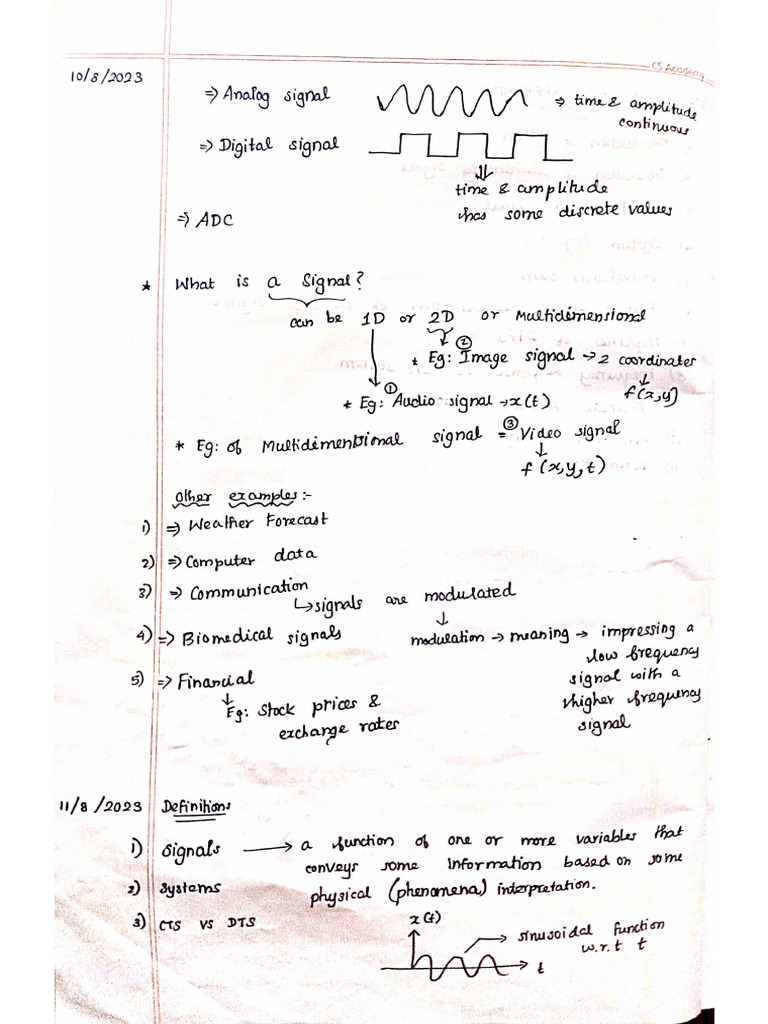 CS Academy
10/8/2023
⇒ Analog signal ⇒ time & amplitude
continuous
⇒ Digital signal
time & amplitude
has some discrete values
⇒ ADC
* What is a Signal?
can be 1D or 2D or Multidimensional
* Eg: ② Image signal → 2 coordinates
f(x,y)
* Eg: ① Audio signal → x(t)
* Eg: of Multidimentsional signal = ③ Video signal
f(x,y,t)
Other examples:-
1) ⇒ Weather Forecast
2) ⇒ Computer data
3) ⇒ Communication
↳ signals are modulated
4) ⇒ Biomedical signals
modulation → meaning → impressing a
low frequency
signal with a
higher frequency
signal
5) ⇒ Financial
Eg: Stock prices &
exchange rates
11/8/2023 Definitions
1) Signals → a function of one or more variables that
conveys some information based on some
physical (phenomena) interpretation.
2) Systems
3) CTS vs DTS
x(t)
sinusoidal function
w.r.t t
t